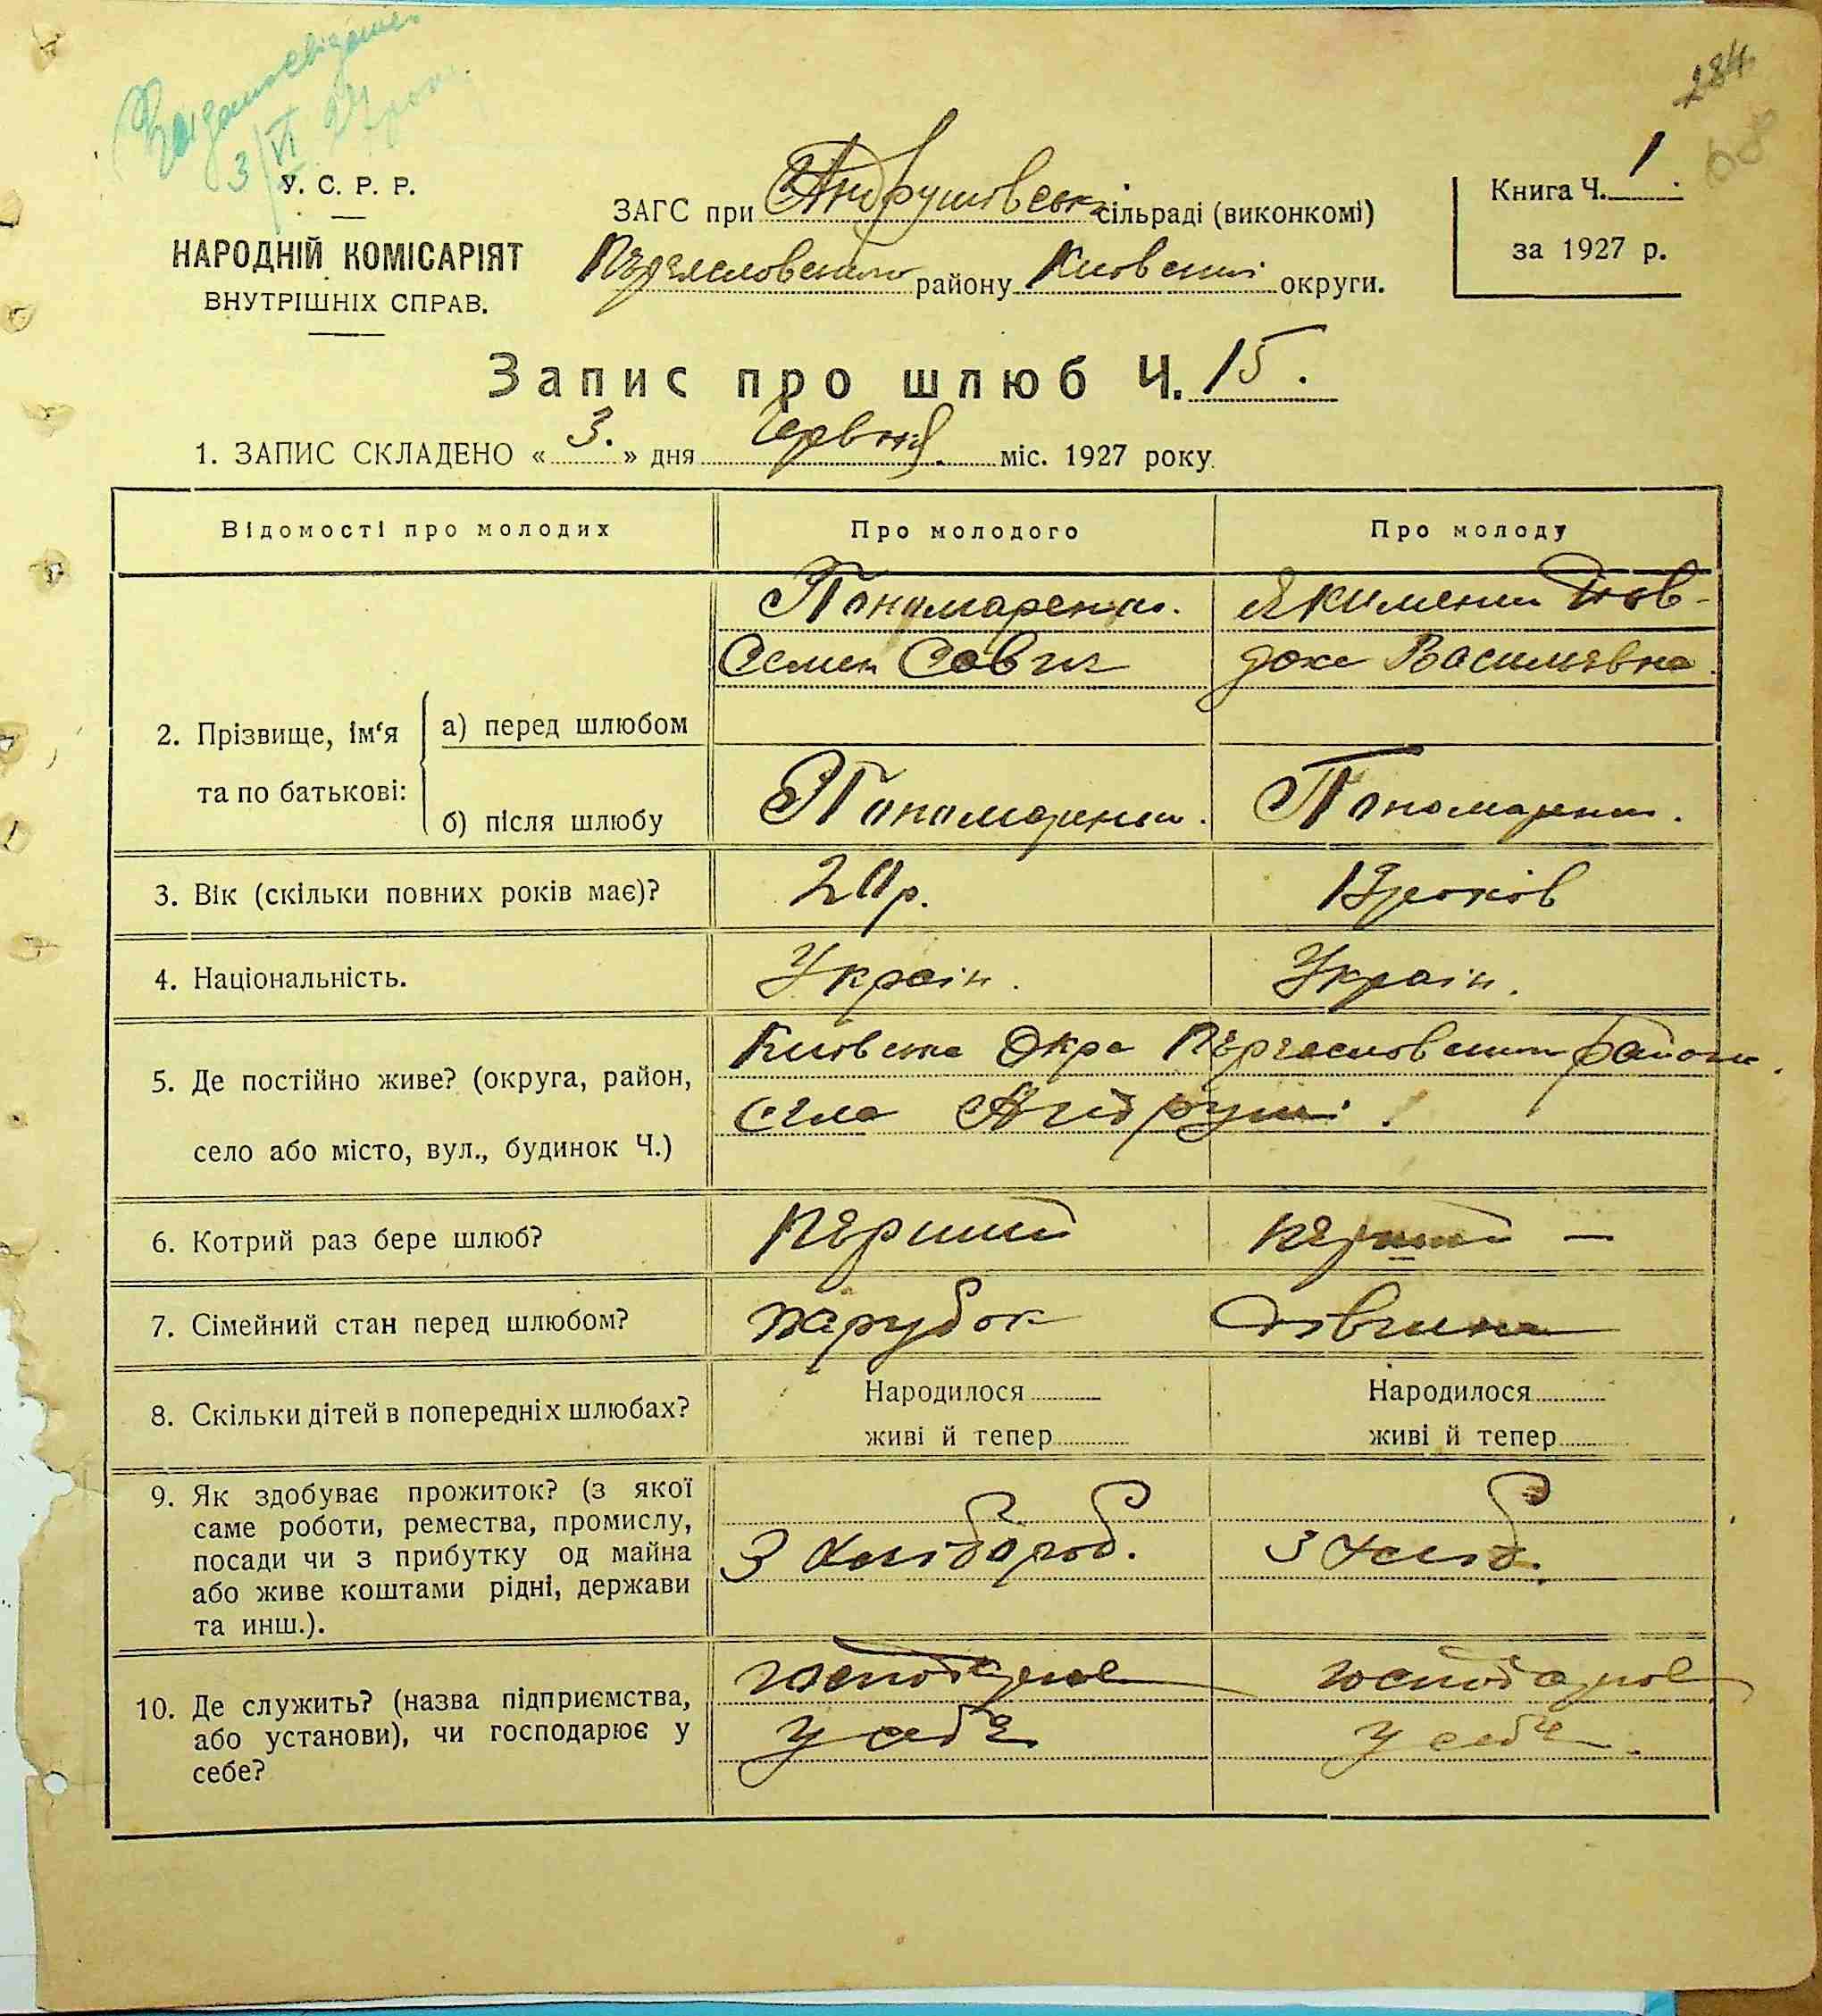 3/VI 27 року
284
68
У. С. Р. Р.
НАРОДНІЙ КОМІСАРІЯТ
ВНУТРІШНІХ СПРАВ.
ЗАГС при Андрушовськ сільраді (виконкомі)
району округи.
Книга Ч. 1
за 1927 р.
Запис про шлюб Ч. 15.
1. ЗАПИС СКЛАДЕНО « 3. » дня Червня міс. 1927 року.
Відомості про молодих
Про молодого
Про молоду
2. Прізвище, ім‘я та по батькові:
а) перед шлюбом
Пономаренко.
Семен Савич
Якименко Йов-
доха Василівна
б) після шлюбу
Пономаренко.
Пономаренко.
3. Вік (скільки повних років має)?
20 р.
років
4. Національність.
Украін.
Украін.
5. Де постійно живе? (округа, район,
село або місто, вул., будинок Ч.)
Киівська Окра району
села Андруші
6. Котрий раз бере шлюб?
Перший
перший —
7. Сімейний стан перед шлюбом?
парубок
дівчина
8. Скільки дітей в попередніх шлюбах?
Народилося
живі й тепер
Народилося
живі й тепер
9. Як здобуває прожиток? (з якої
саме роботи, ремества, промислу,
посади чи з прибутку од майна
або живе коштами рідні, держави
та инш.).
З хлібороб.
З хліб.
10. Де служить? (назва підприємства,
або установи), чи господарює у
себе?
господарює
у себе
господарює
у себе.